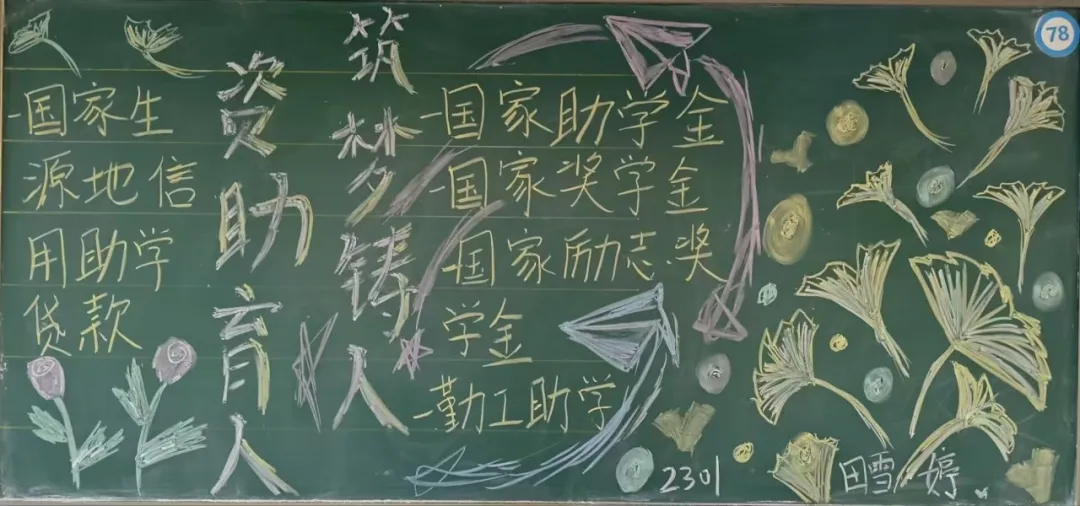 -国家生
源地信
用助学
贷款
资助育人
筑梦铸人
-国家助学金
-国家奖学金
-国家励志奖
学金
-勤工助学
2301
田雪婷
78